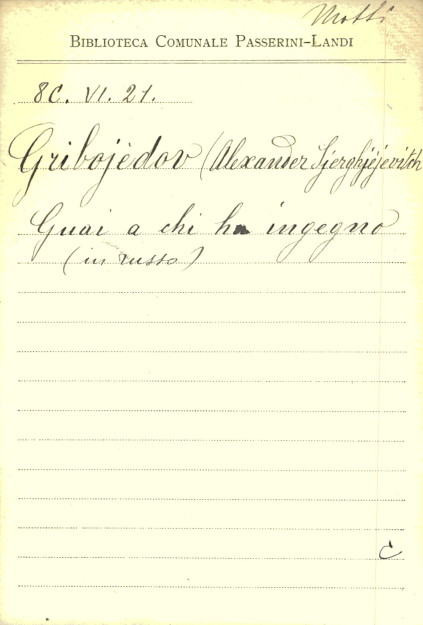 Motti
BIBLIOTECA COMUNALE PASSERINI-LANDI
8C. VI. 21.
Gribojèdov (Alexander Sjerghjéjevitch
Guai a chi ha ingegno
(in russo)
C